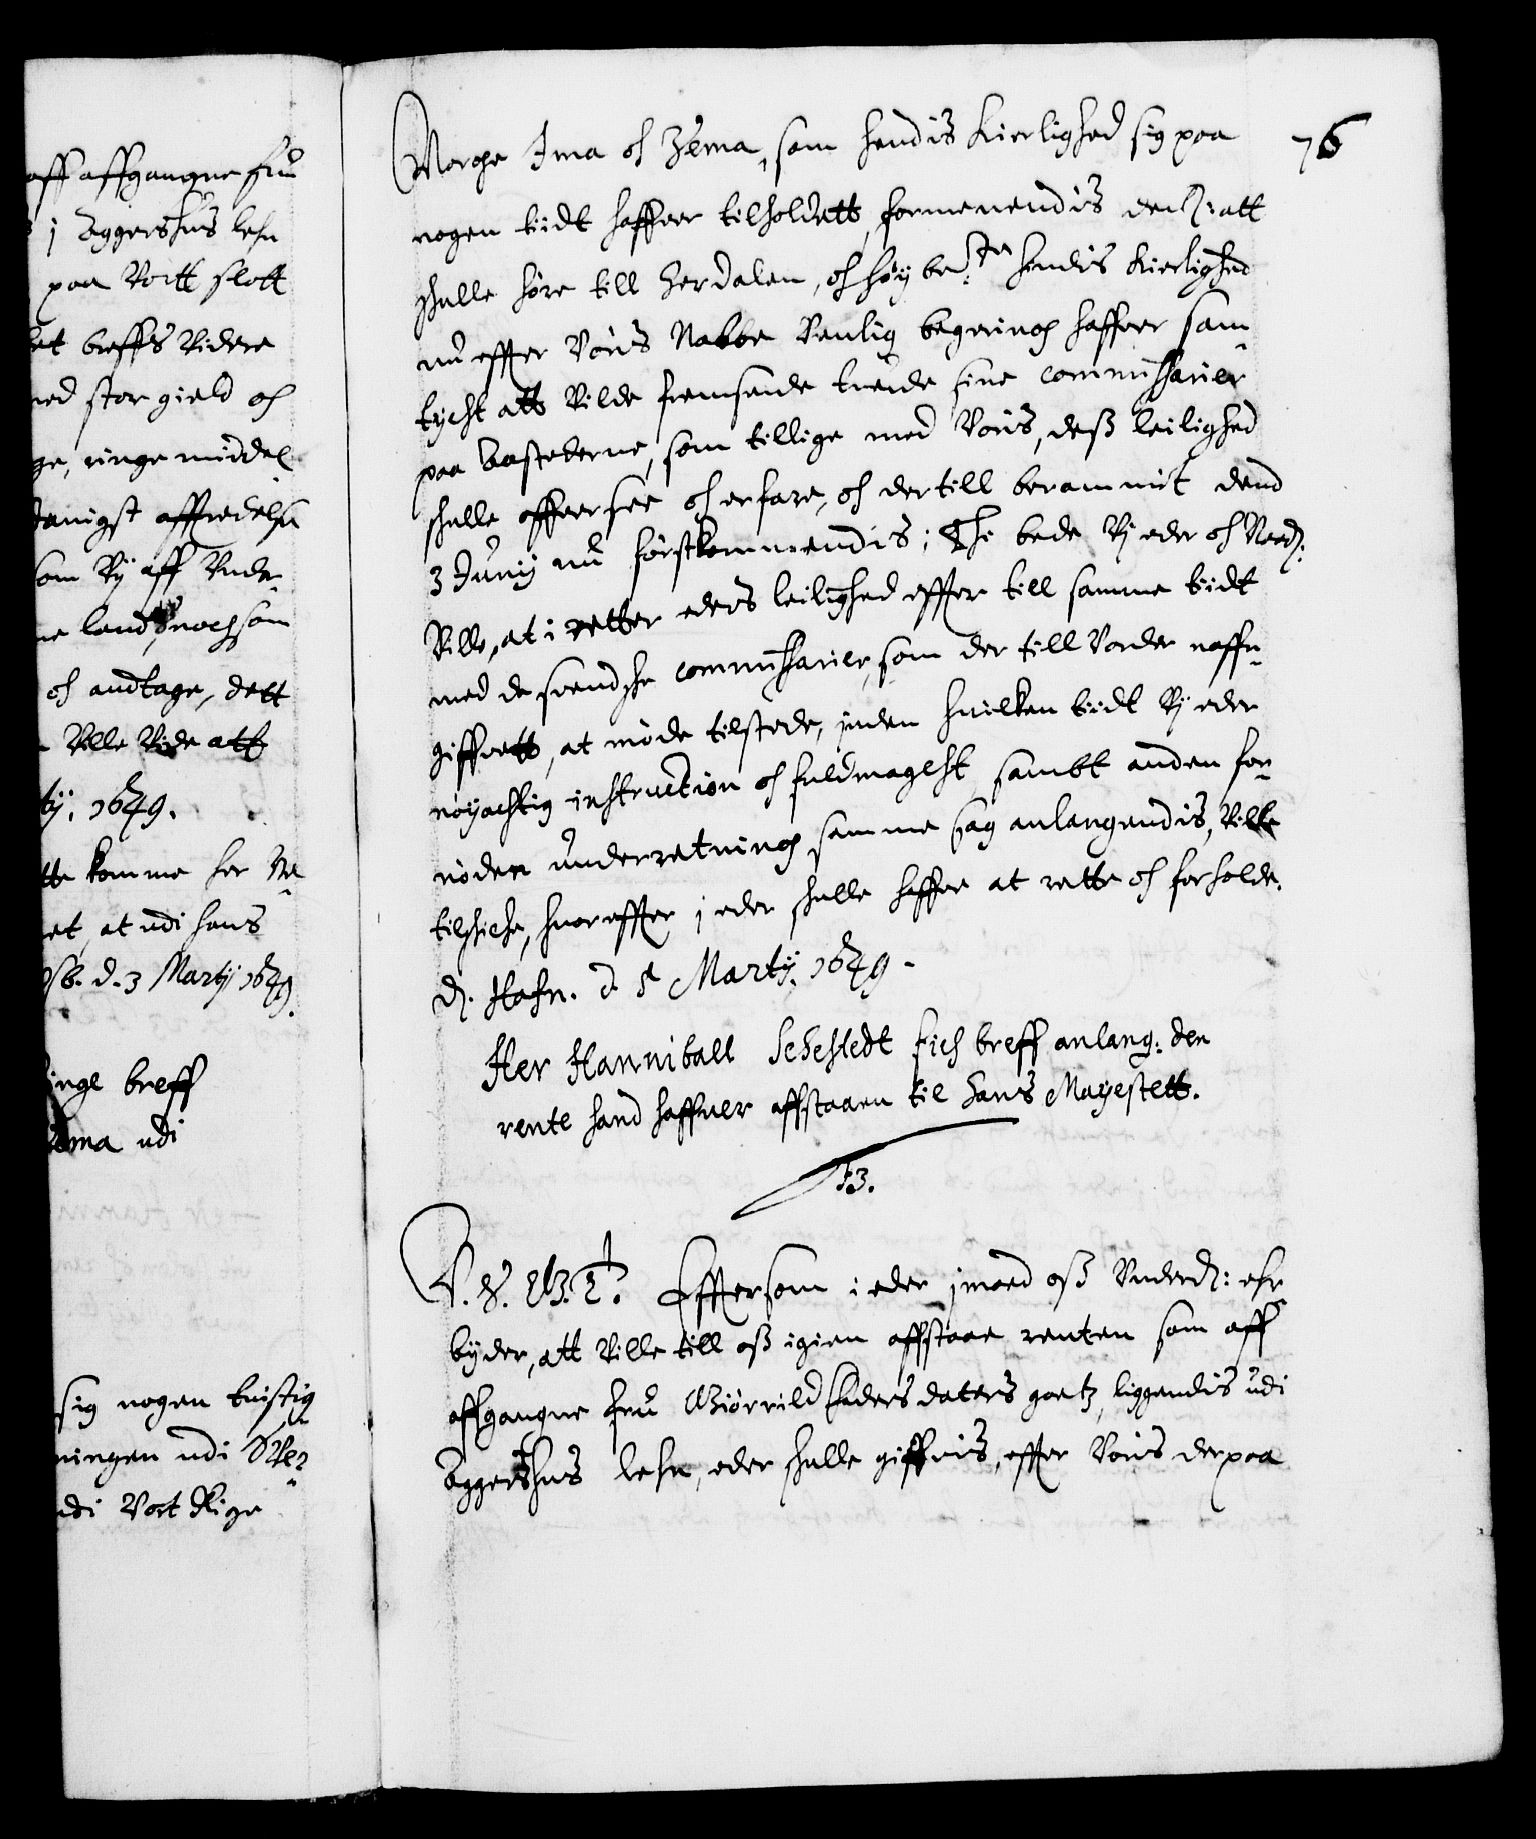 aff affgangne fru
j Aggershus lehn
paa Vortt slott
et breffs Videre
ed stor gield och
ge, ringe middel
danigst affredelse
som Vy aff Unde
ne land, nochsom
och andtage, dett
Ville Vide att
tij: 1649.
tte komme her Ne
et, at udi hans
d. 3 Martij 1649.
inge breff
ema udi
sig nogen tuistig
ningen udi
udi Vort Rige
76
Norge Jma och Zerna, som hendis Kierlighed sig paa
nogen tiidt haffuer tilholdett, formenendis den: att
schulle høre till Herdalen, och høy be:te hendis Kierlighed
nu effter Voris Nabbe Venlig begering haffuer sam
tycht att Vilde fremsende tuende sine commissarier
paa Aastederne, som tillige med Voris, dess leilighed
schulle offuersee och erfare, och dertill berammit dend
3 Junij nu førstkommendis; Thi bede Vj eder och Naad:
Ville, at i retter eders leilighed effter till samme tiidt
med de suendsche commissarier, som der till Vorder naffn
giffuett, at møde tilstede, inden huilken tiidt Vj eder
nøyachtig instruction och fuldmagcht sambt anden for
nøden underretning samme sag anlangendis, Ville
tilschiche, huoreffter j eder schulle haffue at rette och forholde.
D. Hafn. d. 5 Martij. 1649.
Her Hanniball Sehested fich breff anlang: den
rente hand haffuer affstaaen til Hans Mayestett.
53.
C. 4. G. T. Effterson i eder jmod oss Underd: ehr
byder, att Ville till oss igien affstaae renten som aff
affgangne fru Giørvild Fadersdaters goetz, liggendis udi
Aggershus lehn, eder schulle giffuis, effter Voris derpaa